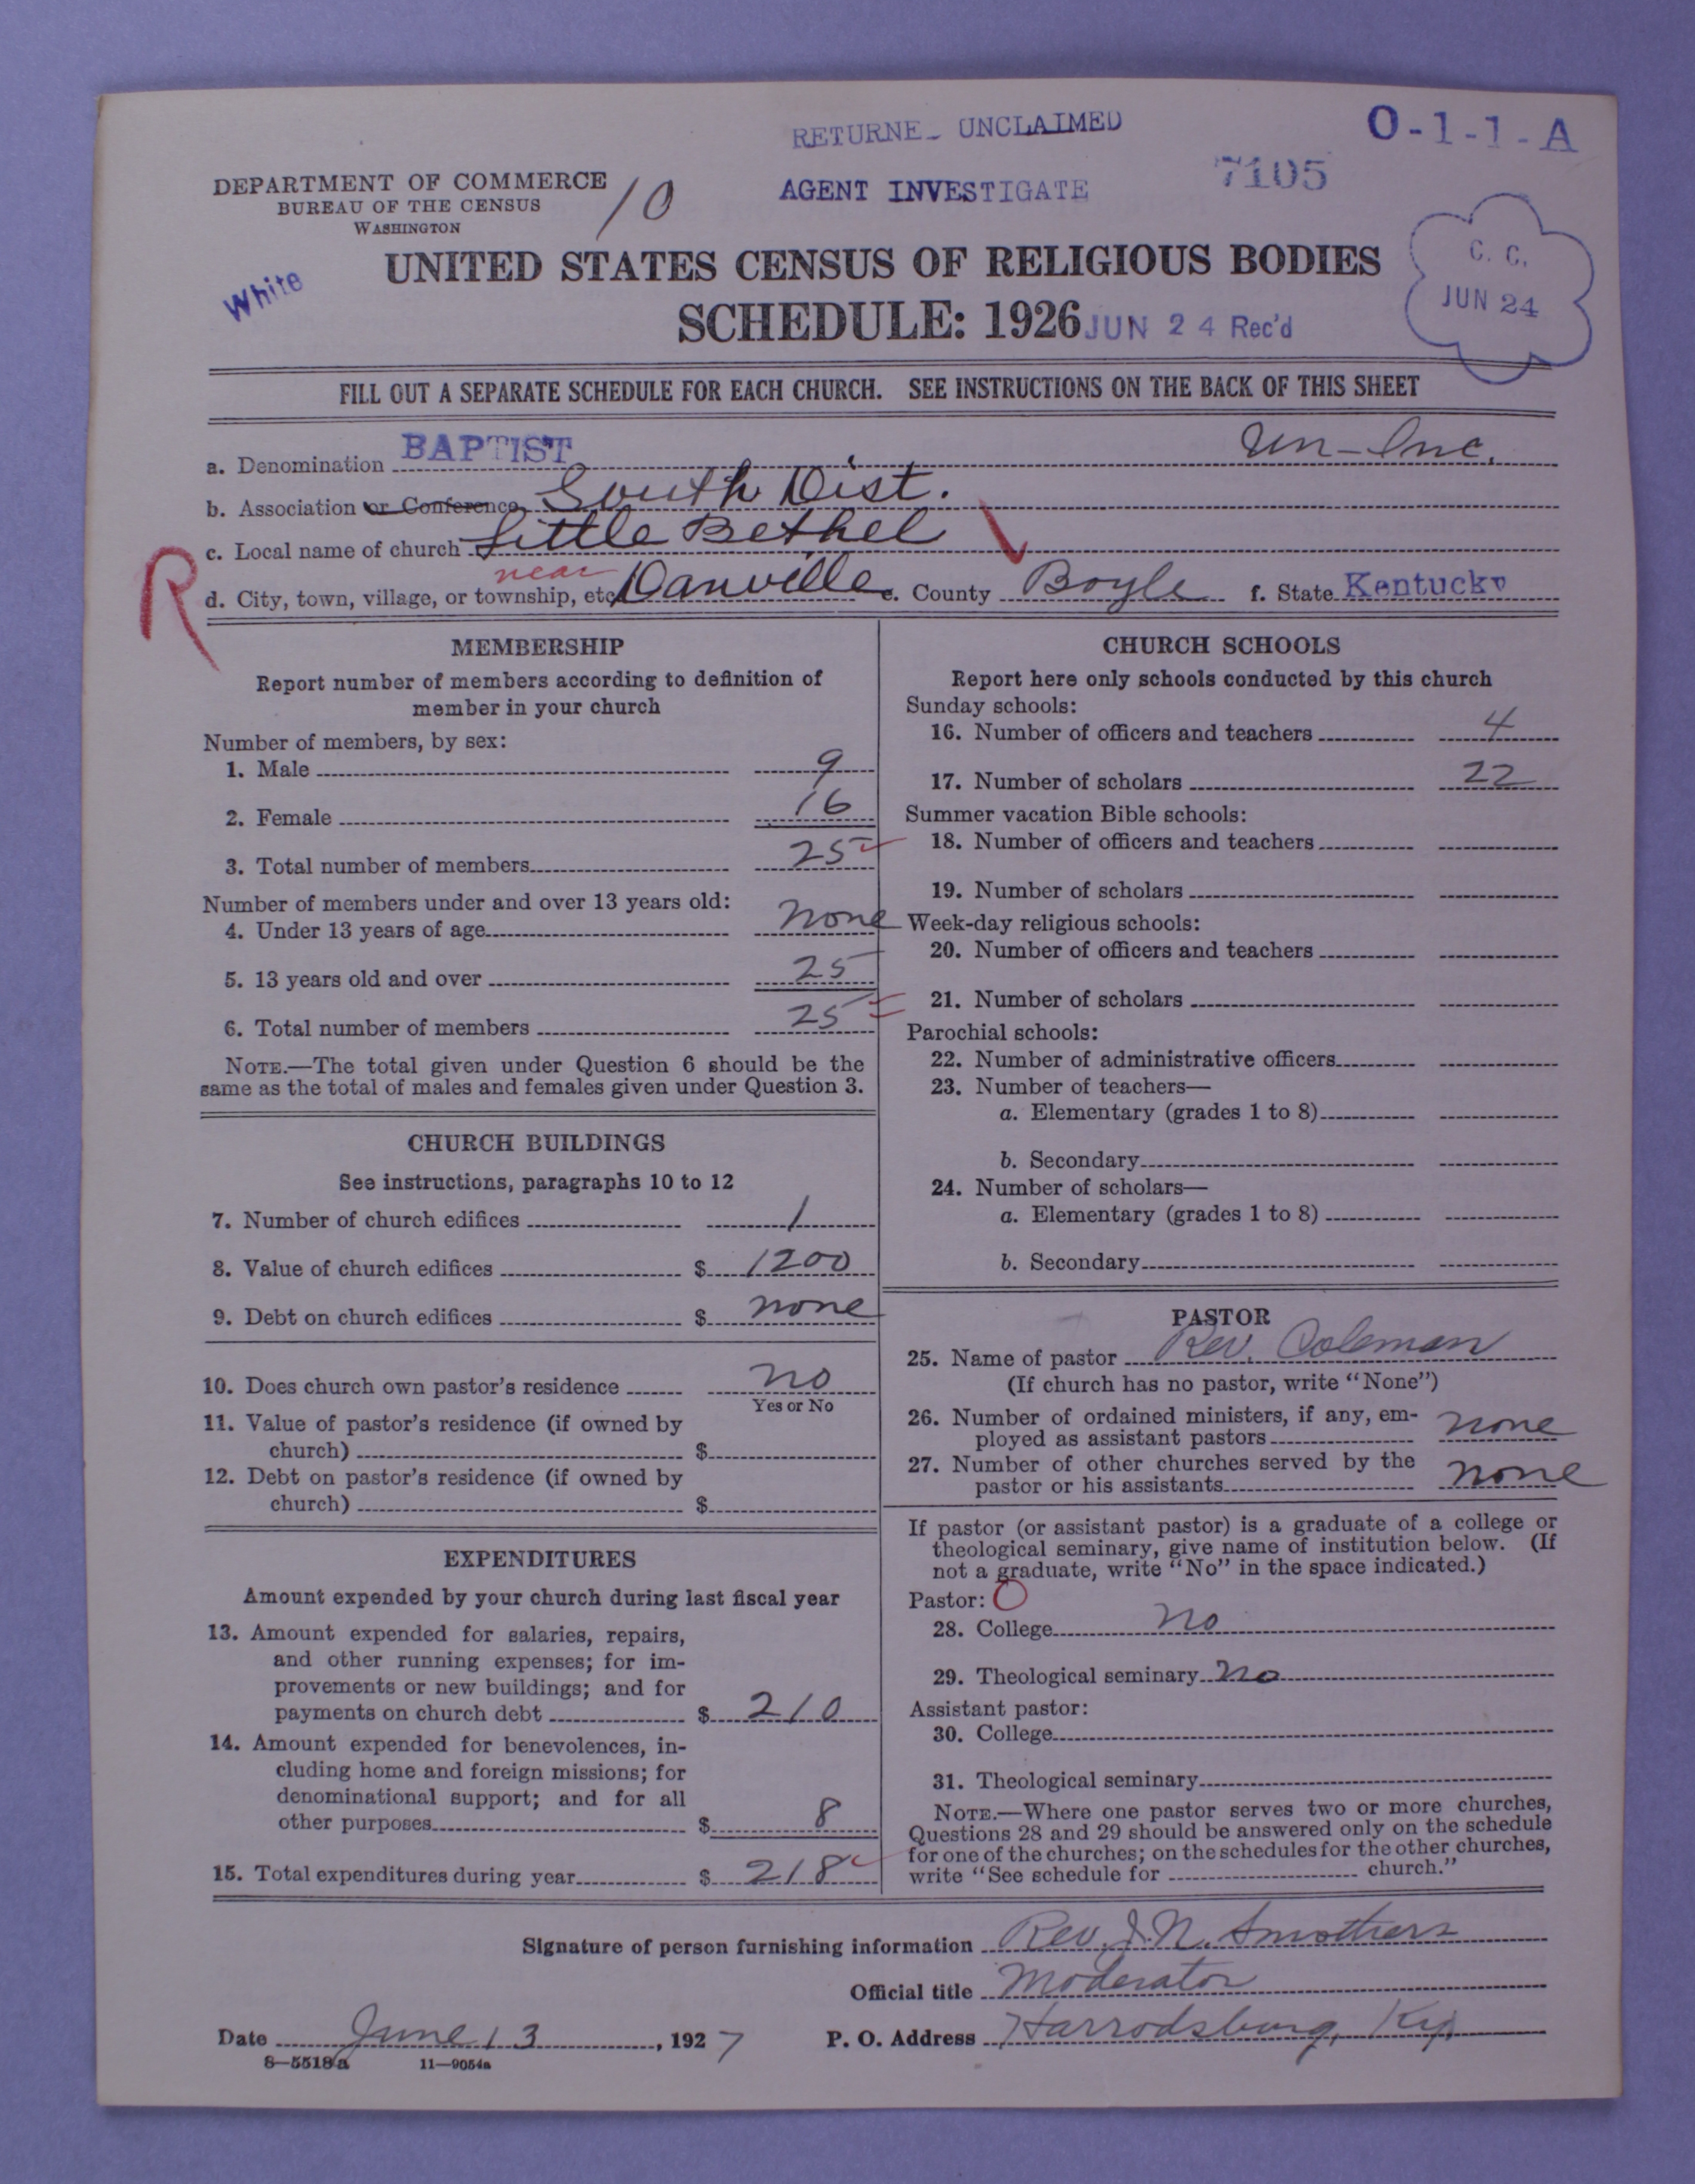 RETURNE_ UNCLAIMED
O-1-1-A
AGENT INVESTIGATE
7105
DEPARTMENT OF COMMERCE
BUREAU OF THE CENSUS
WASHINGTON
10
White
C. C.
JUN 24
UNITED STATES CENSUS OF RELIGIOUS BODIES
SCHEDULE: 1926
JUN 24 Rec'd
FILL OUT A SEPARATE SCHEDULE FOR EACH CHURCH. SEE INSTRUCTIONS ON THE BACK OF THIS SHEET
a. Denomination BAPTIST Un-Inc.
b. Association or Conference South Dist.
c. Local name of church Little Bethel
R
near
d. City, town, village, or township, etc. Danville e. County Boyle f. State Kentucky
MEMBERSHIP
Report number of members according to definition of
member in your church
Number of members, by sex:
1. Male 9
2. Female 16
3. Total number of members 25
Number of members under and over 13 years old:
4. Under 13 years of age none
5. 13 years old and over 25
6. Total number of members 25
NOTE.—The total given under Question 6 should be the
same as the total of males and females given under Question 3.
CHURCH BUILDINGS
See instructions, paragraphs 10 to 12
7. Number of church edifices 1
8. Value of church edifices $ 1200
9. Debt on church edifices $ none
10. Does church own pastor's residence no
Yes or No
11. Value of pastor's residence (if owned by
church) $
12. Debt on pastor's residence (if owned by
church) $
EXPENDITURES
Amount expended by your church during last fiscal year
13. Amount expended for salaries, repairs,
and other running expenses; for im-
provements or new buildings; and for
payments on church debt $ 210
14. Amount expended for benevolences, in-
cluding home and foreign missions; for
denominational support; and for all
other purposes $ 8
15. Total expenditures during year $ 218
CHURCH SCHOOLS
Report here only schools conducted by this church
Sunday schools:
16. Number of officers and teachers 4
17. Number of scholars 22
Summer vacation Bible schools:
18. Number of officers and teachers
19. Number of scholars
Week-day religious schools:
20. Number of officers and teachers
21. Number of scholars
Parochial schools:
22. Number of administrative officers
23. Number of teachers—
a. Elementary (grades 1 to 8)
b. Secondary
24. Number of scholars—
a. Elementary (grades 1 to 8)
b. Secondary
PASTOR
25. Name of pastor Rev. Coleman
(If church has no pastor, write "None")
26. Number of ordained ministers, if any, em-
ployed as assistant pastors none
27. Number of other churches served by the
pastor or his assistants none
If pastor (or assistant pastor) is a graduate of a college or
theological seminary, give name of institution below. (If
not a graduate, write "No" in the space indicated.)
Pastor: O
28. College no
29. Theological seminary no
Assistant pastor:
30. College
31. Theological seminary
NOTE.—Where one pastor serves two or more churches,
Questions 28 and 29 should be answered only on the schedule
for one of the churches; on the schedules for the other churches,
write "See schedule for church."
Signature of person furnishing information Rev. J. N. Smothers
Official title Moderator
Date June 13, 1927 P. O. Address Harrodsburg, Ky.
8—5518a 11—9054a